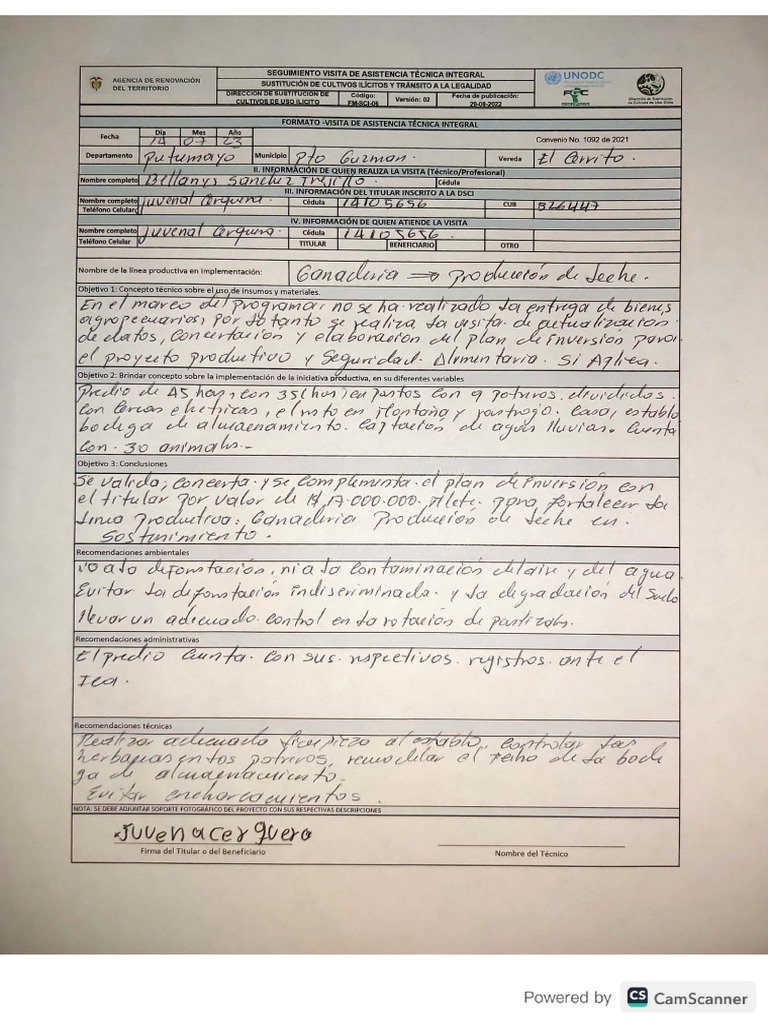 AGENCIA DE RENOVACIÓN
DEL TERRITORIO
SEGUIMIENTO VISITA DE ASISTENCIA TÉCNICA INTEGRAL
SUSTITUCIÓN DE CULTIVOS ILÍCITOS Y TRÁNSITO A LA LEGALIDAD
DIRECCIÓN DE SUSTITUCIÓN DE
CULTIVOS DE USO ILÍCITO
Código:
FM-SCI-06
Versión: 02
Fecha de publicación:
20-08-2022
UNODC
FORMATO -VISITA DE ASISTENCIA TÉCNICA INTEGRAL
Fecha Día Mes Año Convenio No. 1092 de 2021
14 07 23
Departamento Putumayo Municipio Pto Guzman. Vereda El Cerrito.
II. INFORMACIÓN DE QUIEN REALIZA LA VISITA (Técnico/Profesional)
Nombre completo Bellanys Sanchez Trujillo. Cédula
III. INFORMACIÓN DEL TITULAR INSCRITO A LA DSCI
Nombre completo Juvenal Cerquera. Cédula 14105656 CUB 826447
Teléfono Celular
IV. INFORMACIÓN DE QUIEN ATIENDE LA VISITA
Nombre completo Juvenal Cerquera. Cédula 14105656.
Teléfono Celular TITULAR BENEFICIARIO OTRO
Nombre de la línea productiva en implementación: Ganaderia → Producción de Leche.
Objetivo 1: Concepto técnico sobre el uso de insumos y materiales.
En el marco del programa, no se ha realizado la entrega de bienes
agropecuarios, por lo tanto se realiza la visita de actualización
de datos, concertación y elaboración del plan de inversión para
el proyecto productivo y Seguridad Alimentaria. Si Aplica.
Objetivo 2: Brindar concepto sobre la implementación de la iniciativa productiva, en su diferentes variables
Predio de 45 has, con 35 has en pastos con 9 potreros divididos
con cercas electricas, el resto en Montaña y rastrojo. Casa, establo
bodega de almacenamiento. Captación de aguas lluvias. Cuenta
con 30 animales.-
Objetivo 3: Conclusiones
Se valida, concerta y se complementa el plan de inversión con
el titular por valor de $ 17.000.000. para fortalecer la
linea productiva: Ganaderia Producción de Leche en
Sostenimiento.
Recomendaciones ambientales
No a la deforestación, ni a la contaminación del aire y del agua.
Evitar la deforestación indiscriminada y la degradación del suelo
llevar un adecuado control en la rotación de pastizales.
Recomendaciones administrativas
El predio cuenta con sus respectivos registros ante el
Ica.
Recomendaciones técnicas
Realizar adecuada limpieza al establo, controlar las
herbaceas en los potreros, remodelar el techo de la bode
ga de almacenamiento.
Evitar encharcamientos.
NOTA: SE DEBE ADJUNTAR SOPORTE FOTOGRÁFICO DEL PROYECTO CON SUS RESPECTIVAS DESCRIPCIONES
Juvenacerquera
Firma del Titular o del Beneficiario
Nombre del Técnico
Powered by CS CamScanner